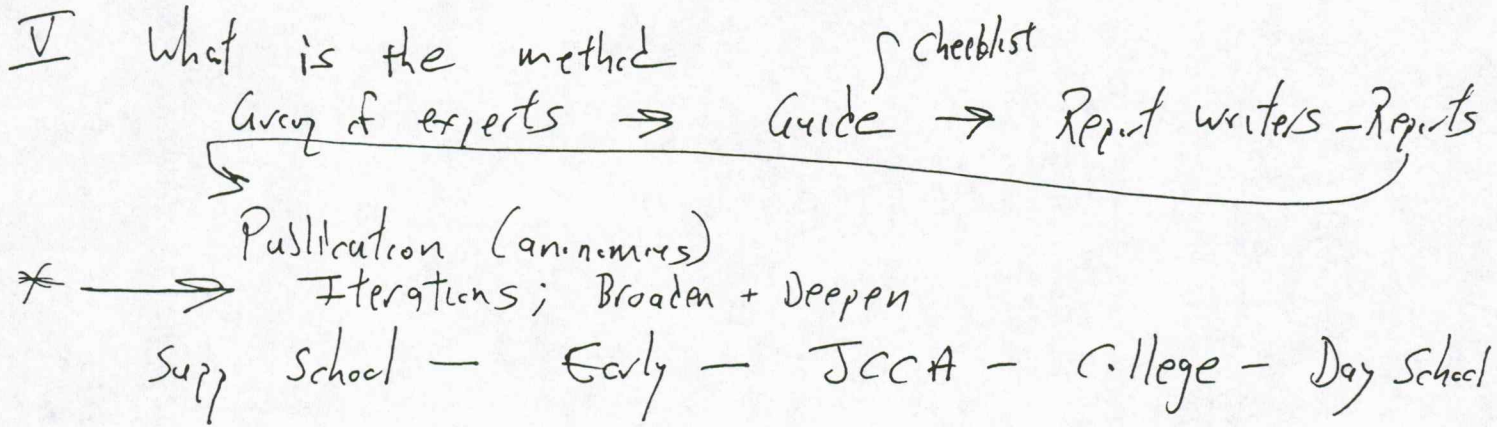 V What is the method
Checklist
Group of experts → Guide → Report writers - Reports
Publication (anonimous)
* → Iterations; Broaden + Deepen
Supp School - Early - JCCA - College - Day School